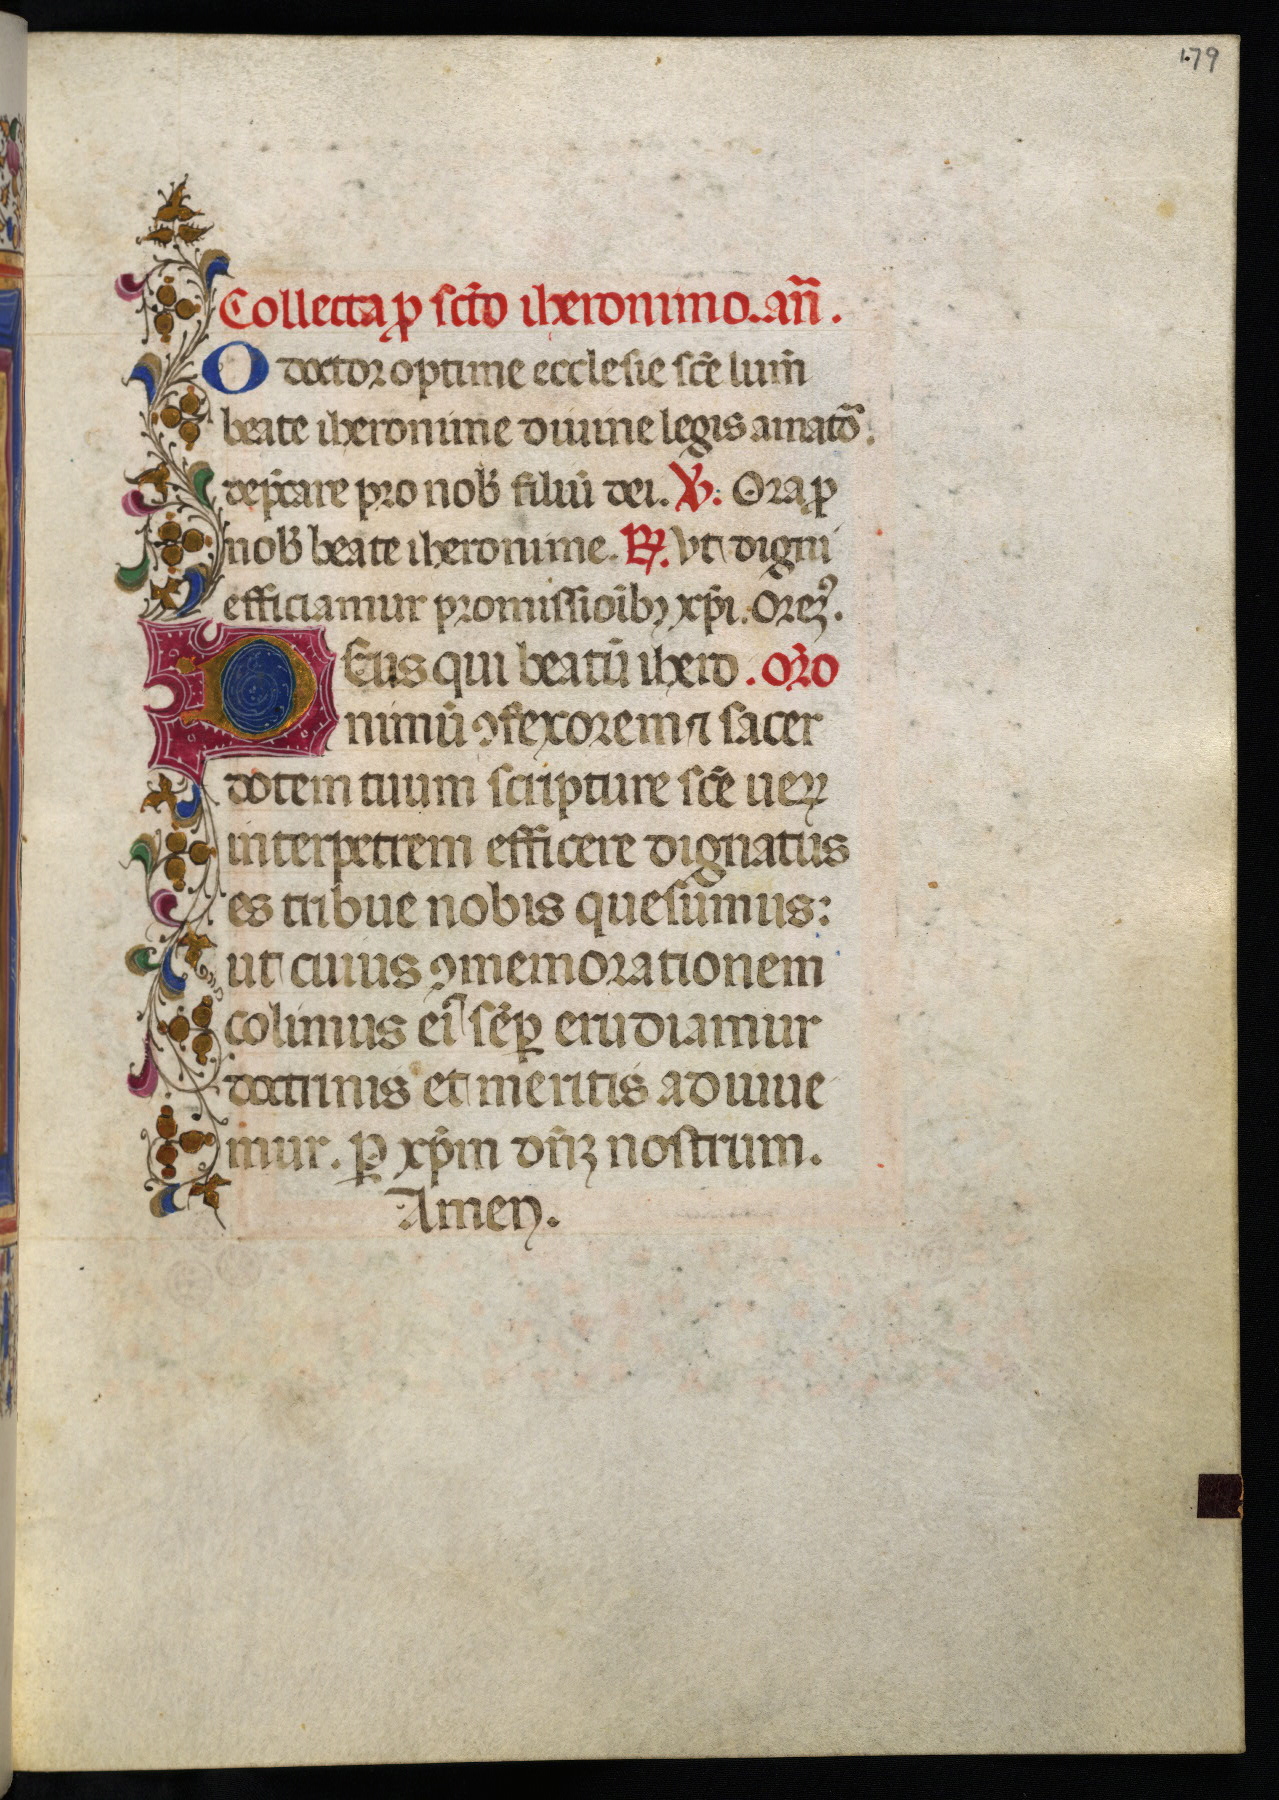 179
Collecta ꝓ sc̄to iheronimo. an̄.
O doctor optime ecclesie sc̄e lum̄
beate iheronime diuine legis amatō.
dep̄care pro nob̄ filiū dei. ℣. Ora ꝓ
nob̄ beate iheronime. ℟. Vt digni
efficiamur promissioīb; xp̄i. Orem̄9.
Deus qui beatū ihero . or̄o
nimū ꝯfexorem ⁊ sacer
dotem tuum scripture sc̄e ueꝝ
interpetrem efficere dignatus
es tribue nobis quesumus:
ut cuius ꝯmemorationem
colimus ei seꝑ erudiamur
doctrinis et meritis adiuue
mur. ꝑ xp̄m dn̄ꝫ nostrum.
Amen.